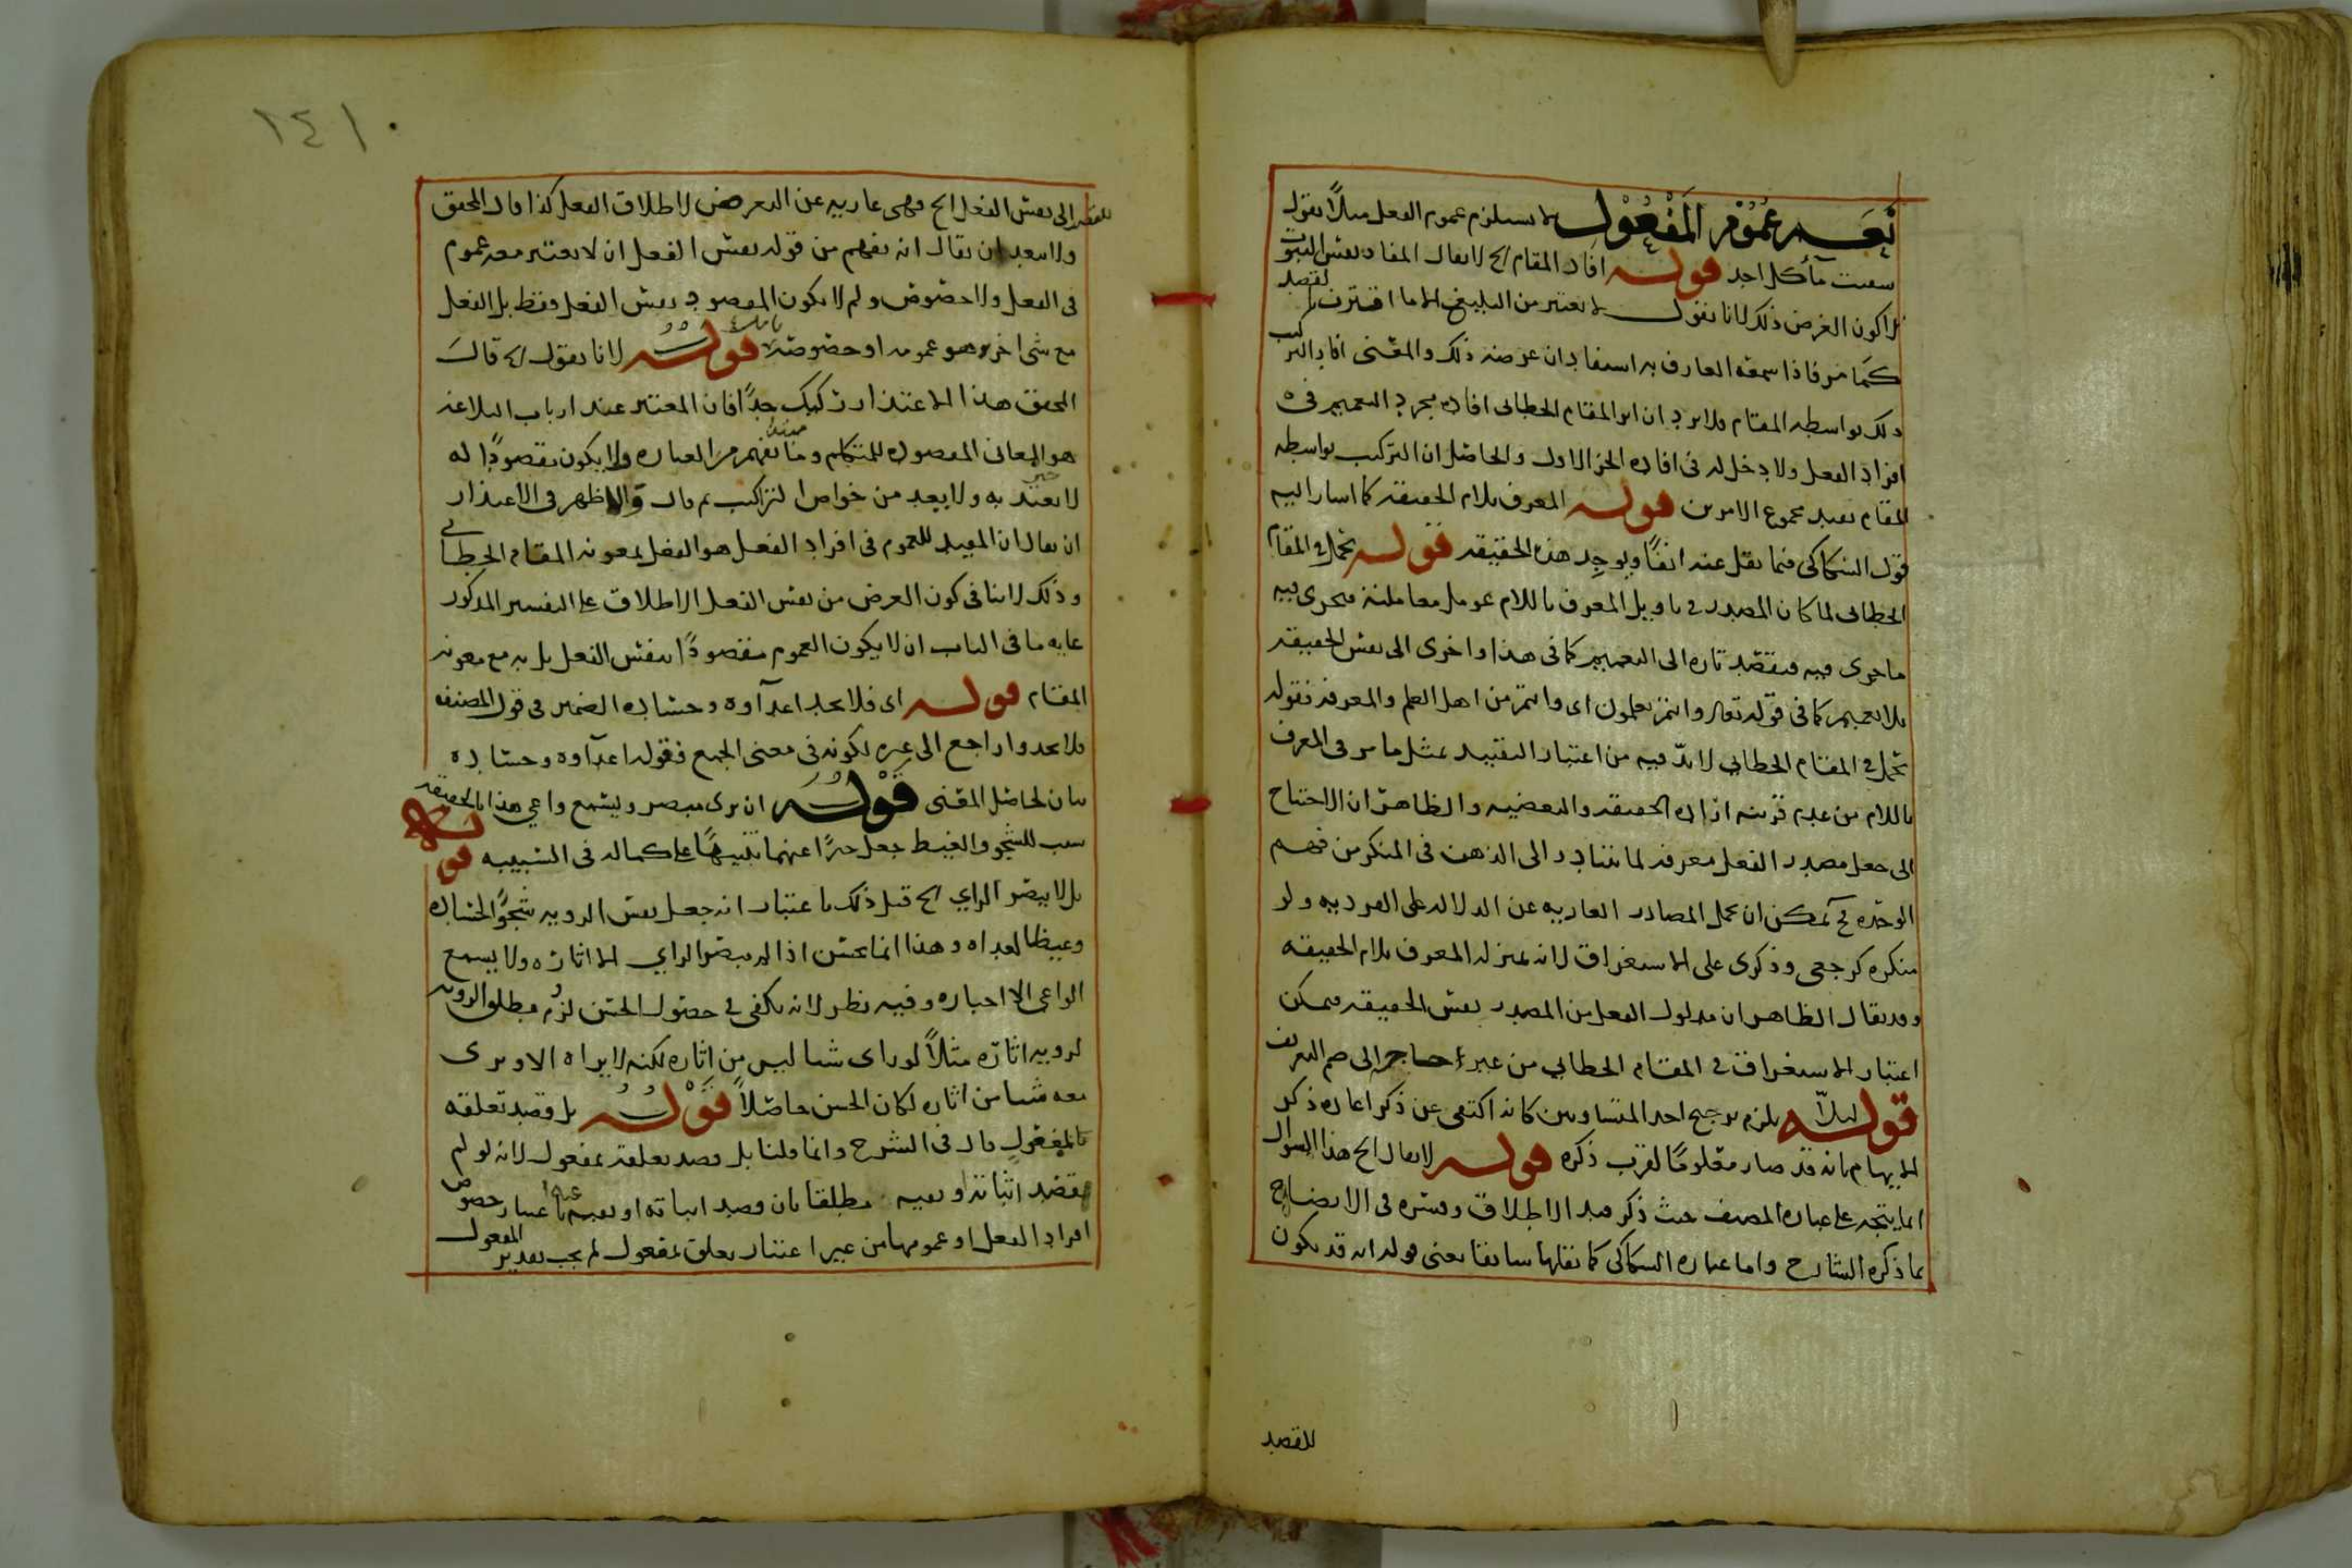 نعم عموم المفعول لا يستلزم عموم الفعل مثلاً تقول
سمعت مأكل احد قوله افاد المقام الخ لا يقال المفاد بنفس الثبوت
لا كون الغرض ذلك لانا نقول لا يعتبر من البليغ الا ما اقترن بالقصد
كما مر فاذا سمعه العارف به استفاد ان غرضه ذلك والمعنى افاد التركيب
ذلك بواسطة المقام فلا يرد ان اثر المقام الخطابى افادة مجرد التعميم فى
افراد الفعل ولا دخل له فى افادة الجزء الاول والحاصل ان التركيب بواسطة
المقام يفيد مجموع الامرين قوله المعرف بلام الحقيقة كما اشار اليه
قول السكاكى فيما نقل عنه انفاً ويوجد هذه الحقيقة قوله يحمل فى المقام
الخطابى لما كان المصدر فى تاويل المعرف باللام عومل معاملته فجرى فيه
ما جرى فيه فيقصد تارة الى التعميم كما فى هذا واخرى الى نفس الحقيقة
بلا تعميم كما فى قوله تعالى وانتم تعلمون اى وانتم من اهل العلم والمعرفة فقوله
يحمل فى المقام الخطابى لا بد فيه من اعتبار التقييد بمثل ما مر فى المعرف
باللام من عدم قرينة ارادة الحقيقة والبعضية والظاهر ان الاحتياج
الى جعل مصدر الفعل معرفة لما يتبادر الى الذهن فى المنكر من فهم
الوحدة ثم يمكن ان يحمل المصادر العارية عن الدلالة على الفردية ولو
منكرة كرجعى وذكرى على الاستغراق لانه بمنزلة المعرف بلام الحقيقة
وقد يقال الظاهر ان مدلول الفعل من المصدر نفس الحقيقة فيمكن
اعتبار الاستغراق فى المقام الخطابى من غير احتياج الى ضم التعريف
قوله لئلا يلزم ترجيح احد المتساويين كانه اكتفى عن ذكر اعادة ذكر
الايهام بانه قد صار معلومًا لقرب ذكره قوله لا يقال الخ هذا السؤال
انما يتجه على عبارة المصنف حيث ذكر قيد الاطلاق وفسره فى الايضاح
بما ذكره الشارح واما عبارة السكاكى كما نقلها سابقا يعنى قوله انه قد يكون
للقصد
١٤١
للقصد الى نفس الفعل الخ فهى عارية عن التعرض لاطلاق الفعل كذا قال المحقق
ولا يبعد ان يقال انه يفهم من قوله نفس الفعل ان لا يعتبر معه عموم
فى الفعل ولا خصوص ولم لا يكون المقصود نفس الفعل فقط بل الفعل
مع شى اخر وهو عمومه او خصوصه قوله لانا نقول الخ قال
المحقق هذا الاعتذار ركيك جدًا فان المعتبر عند ارباب البلاغة
هو المعانى المقصودة للمتكلم وما يفهم من العبارة ولا يكون مقصودًا له
لا يعتد به ولا يعد من خواص التراكيب ثم قال والاظهر فى الاعتذار
ان يقال ان المفيد للعموم فى افراد الفعل هو الفعل بمعونة المقام الخطابى
وذلك لا ينافى كون الغرض من نفس الفعل الاطلاق على التفسير المذكور
غاية ما فى الباب ان لا يكون العموم مقصودًا بنفس الفعل بل به مع معونة
المقام قوله اى فلا يجد اعدآوه وحساده الضمير فى قول المصنف
فلا يجدوا راجع الى غيره لكونه فى معنى الجمع فقوله اعدآوه وحساده
بيان لحاصل المعنى قوله ان يرى مبصر ويسمع واعى هذا بالحقيقة
سبب للشجو والغيظ جعل خبرًا عنهما تنبيهًا على كماله فى السببية قوله
بل لا يبصر الراى الخ قيل ذلك باعتبار انه جعل نفس الروية شجوًا لحساده
وغيظا لعداه وهذا انما يحسن اذا لم يبصر الراى الا اثاره ولا يسمع
الواعى الا اخباره وفيه نظر لانه يكفى فى حصول الحسن لزوم مطلق الروية
لروية اثاره مثلاً لو راى شيا ليس من اثاره لكنه لا يراه الا ويرى
معه شيا من اثاره لكان الحسن حاصلاً قوله بل قصد تعلقه
بالمفعول قال فى الشرح وانما قلنا بل قصد تعلقه بمفعول لانه لو لم
يقصد اثباته او نفيه مطلقا بان قصد اثباته او نفيه باعتبار خصوص
افراد الفعل او عمومها من غير اعتبار تعلق بمفعول لم يجب تقدير المفعول